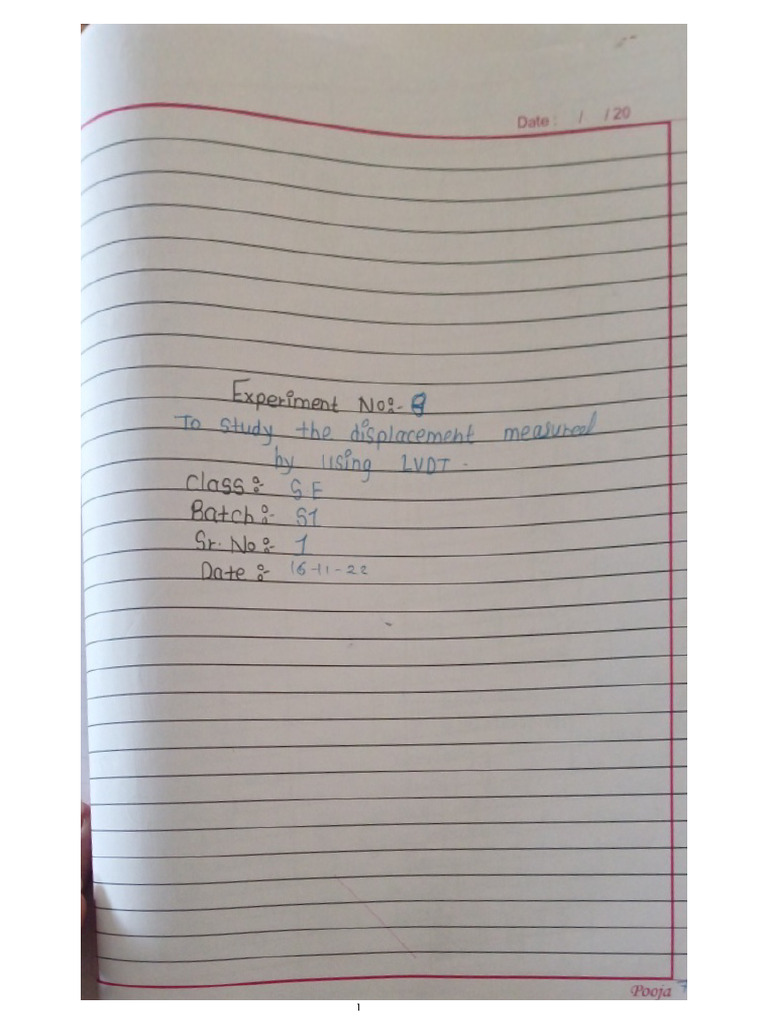 Date : / / 20
Experiment No:- 8
To study the displacement measured
by using LVDT.
Class:- SE
Batch:- S1
Sr. No:- 1
Date:- 16-11-22
Pooja
1